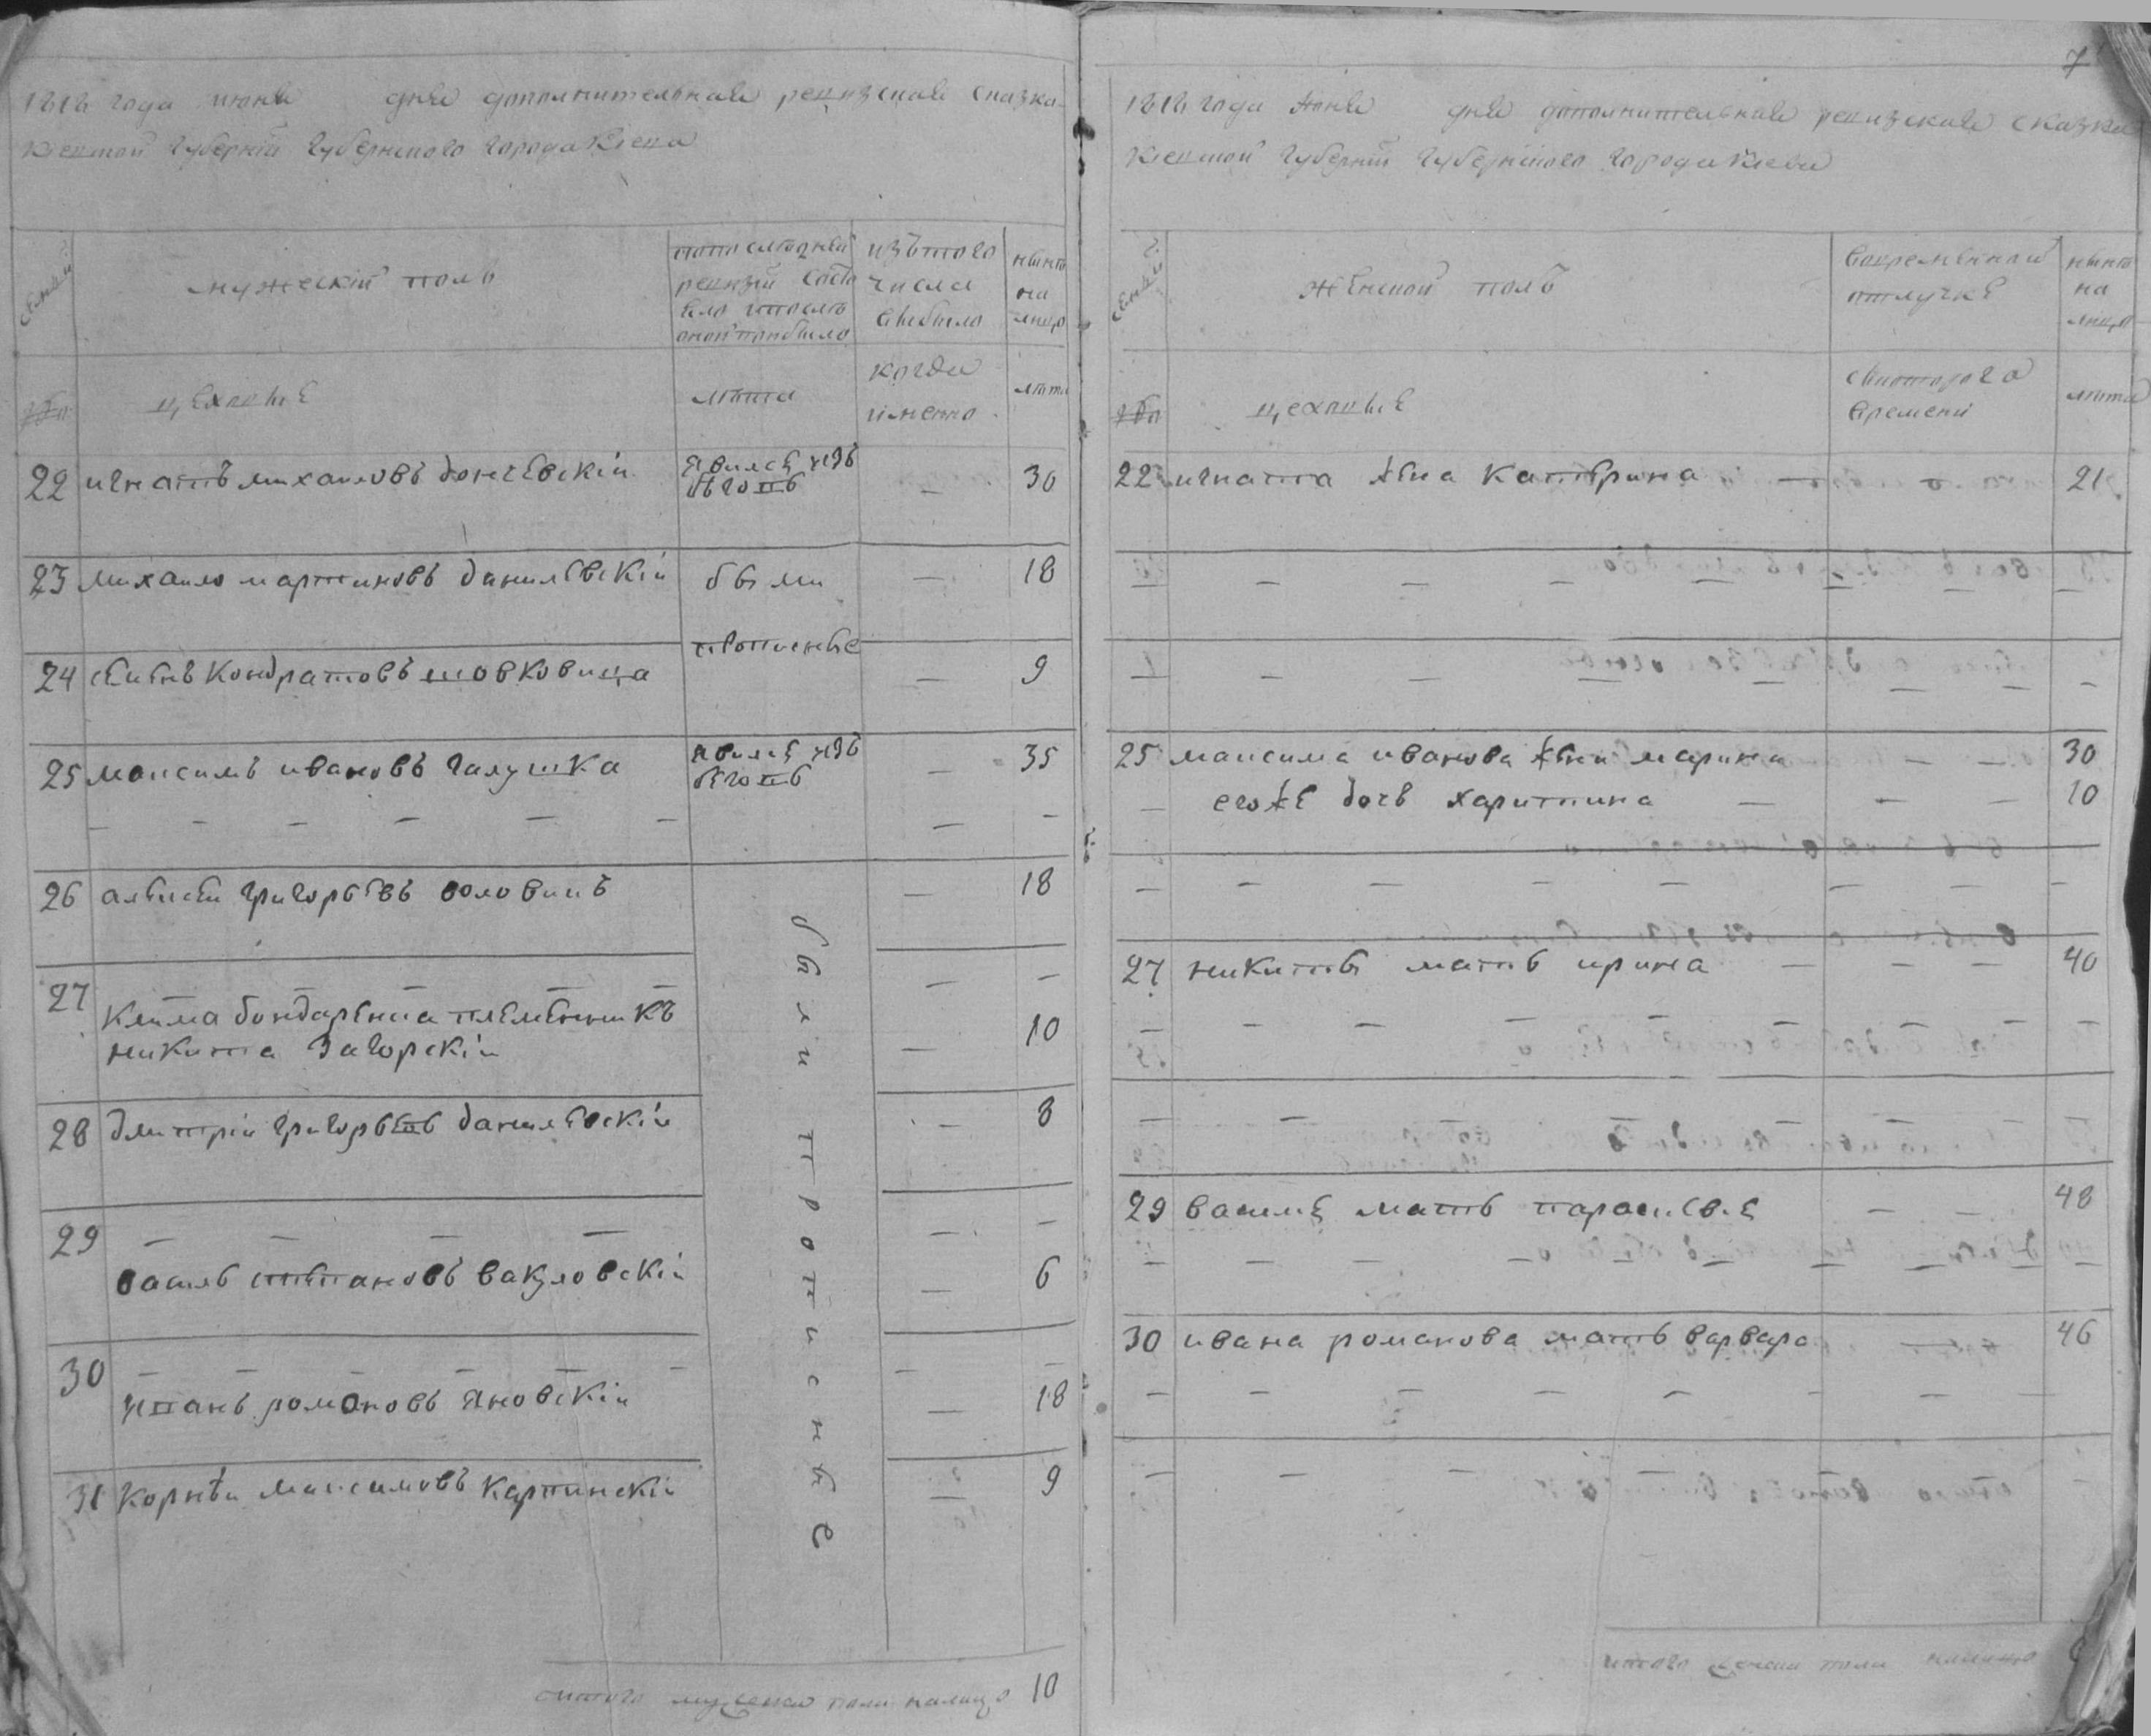 1816 года июня дня дополнительная ревизская сказка
Киевской губернїй губернского города Кїева
семьи
мужескїй полъ
по последней
ревизїй состо
яло и после
оной прибыло
изътого
числа
выбыло
ныне
на
лицо
цеховые
лета
когда
имянно
лета
22 игнатъ михаиловъ дончевскїи явился изъ беговъ — 30
23 михаило мартиновъ данилевскїи бы ли — 18
прописные
24 кондратовъ шовковица — 9
25 максимъ ивановъ галушка явился изъ беговъ — 35
26 алексеи григорьевъ воловикъ — 18
27
клима бондаренка племенникъ
никита загорскїи — 10
28 дмитрїи григорьевъ данилевскїи — 8
29
василь степановъ вакуловскїи — 6
30
иванъ романовъ яновскїи — 18
31 корнеи максимовъ карпинскїи — 9
были прописные
итого мужеска пола налицо 10
7
1816 года Июня дня дополнительная ревизская сказка
Киевской губернїй губернского города Киева
семьи
женской полъ
вовременной
отлучке
ныне
на
лицо
цеховые
скоторого
времени
лета
22 игната жена катерина — — 21
25 максима иванова жена марина — — 30
— егоже дочь харитина — — — 10
27 никиты мать ирина — — — 40
29 василя мать параскевїя — — 48
30 ивана романова мать варвара — 46
итого женска пола налицо